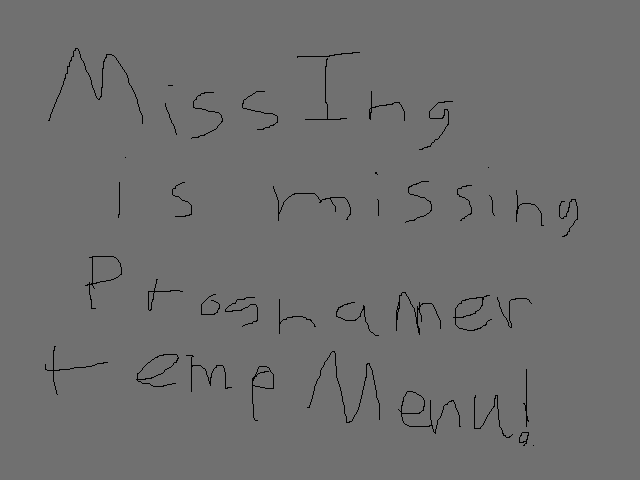 MissIng
is missing
Programer
temp Menu!